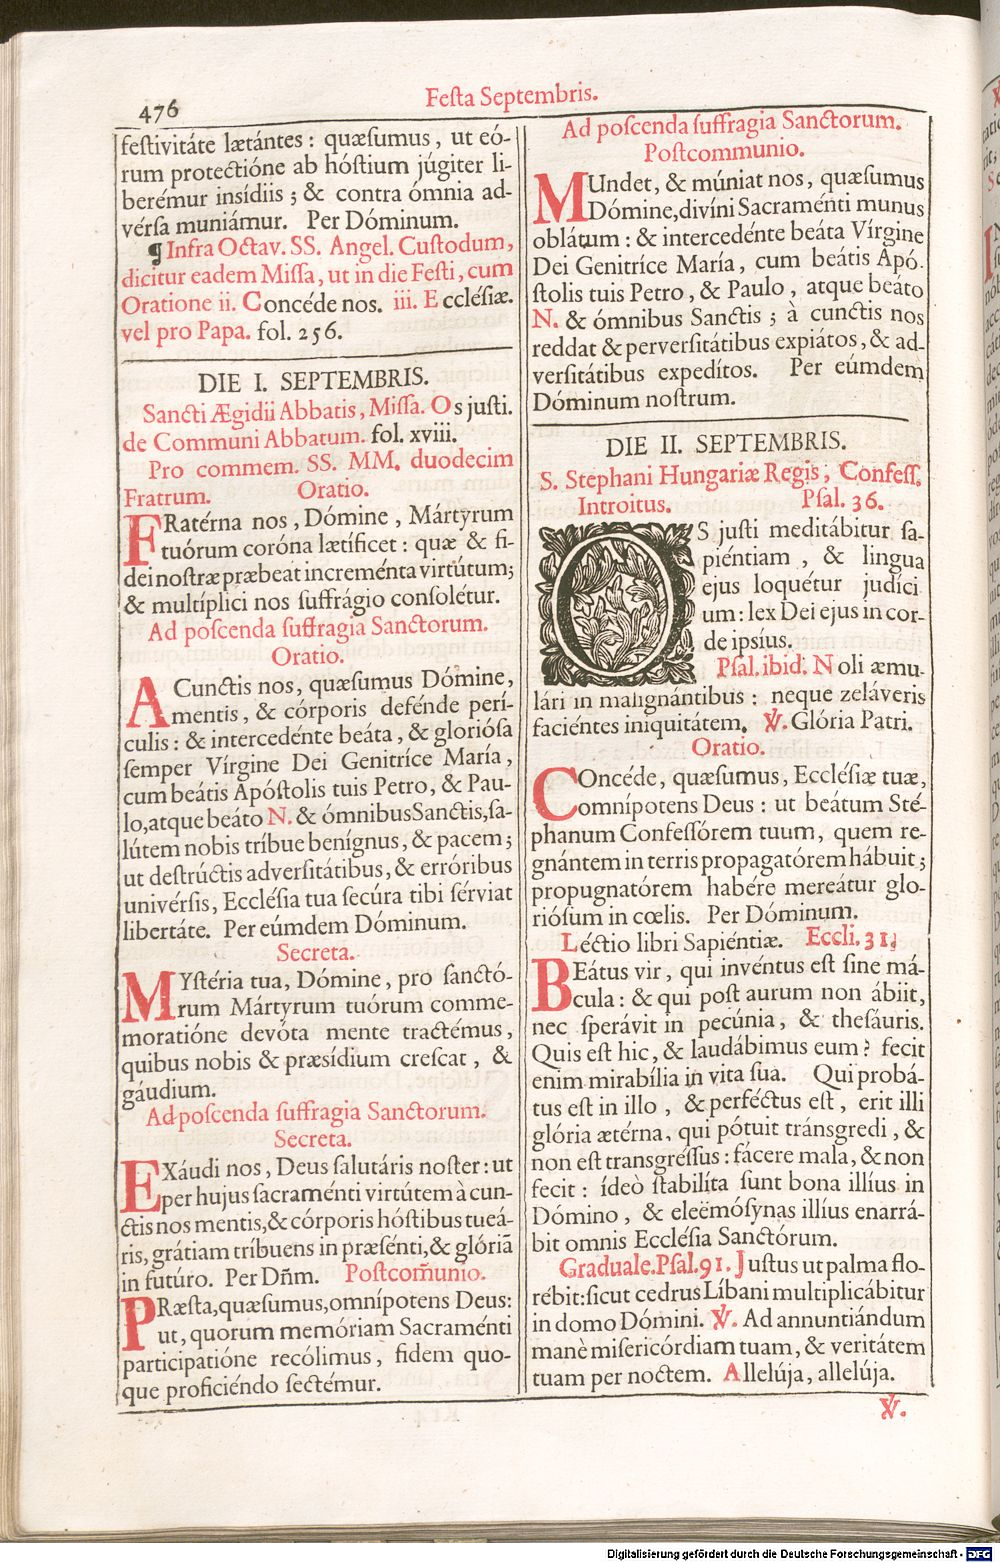 476
Feſta Septembris.
feſtivitáte lætántes : quæſumus, ut eó-
rum protectióne ab hóſtium júgiter li-
berémur inſídiis ; & contra ómnia ad-
vérſa muniámur. Per Dóminum.
¶ Infra Octav. SS. Angel. Cuſtodum,
dicitur eadem Miſſa, ut in die Feſti, cum
Oratione ii. Concéde nos. iii. Eccléſiæ.
vel pro Papa. fol. 256.
DIE I. SEPTEMBRIS.
Sancti Ægidii Abbatis, Miſſa. Os juſti.
de Communi Abbatum. fol. xviii.
Pro commem. SS. MM. duodecim
Fratrum. Oratio.
FRatérna nos, Dómine, Mártyrum
tuórum coróna lætíficet : quæ & fi-
dei noſtræ præbeat increménta virtútum;
& multíplici nos ſuffrágio conſolétur.
Ad poſcenda ſuffragia Sanctorum.
Oratio.
A Cunctis nos, quæſumus Dómine,
mentis, & córporis defénde perí-
culis : & intercedénte beáta, & glorióſa
ſemper Vírgine Dei Genitríce María,
cum beátis Apóſtolis tuis Petro, & Pau-
lo, atque beáto N. & ómnibus Sanctis, ſa-
lútem nobis tríbue benígnus, & pacem;
ut deſtrúctis adverſitátibus, & erróribus
univérſis, Eccléſia tua ſecúra tibi ſérviat
libertáte. Per eúmdem Dóminum.
Secreta.
MYſtéria tua, Dómine, pro ſanctó-
rum Mártyrum tuórum comme-
moratióne devóta mente tractémus,
quibus nobis & præsídium creſcat, &
gáudium.
Ad poſcenda ſuffragia Sanctorum.
Secreta.
EXáudi nos, Deus ſalutáris noſter : ut
per hujus ſacraménti virtútem à cun-
ctis nos mentis, & córporis hóſtibus tueá-
ris, grátiam tríbuens in præſénti, & glóriã
in futúro. Per Dñm. Poſtcom̃unio.
PRæſta, quæſumus, omnípotens Deus:
ut, quorum memóriam Sacraménti
participatióne recólimus, fidem quo-
que proficiéndo ſectémur.
Ad poſcenda ſuffragia Sanctorum.
Poſtcommunio.
MUndet, & múniat nos, quæſumus
Dómine, divíni Sacraménti munus
oblátum : & intercedénte beáta Vírgine
Dei Genitríce María, cum beátis Apó-
ſtolis tuis Petro, & Paulo, atque beáto
N. & ómnibus Sanctis ; à cunctis nos
reddat & perverſitátibus expiátos, & ad-
verſitátibus expedítos. Per eúmdem
Dóminum noſtrum.
DIE II. SEPTEMBRIS.
S. Stephani Hungariæ Regis, Confeſſ.
Introitus. Pſal. 36.
OS juſti meditábitur ſa-
piéntiam, & lingua
ejus loquétur judíci
um : lex Dei ejus in cor-
de ipsíus.
Pſal. ibid. Noli æmu-
lári in malignántibus : neque zeláveris
faciéntes iniquitátem. ℣. Glória Patri.
Oratio.
COncéde, quæſumus, Eccléſiæ tuæ,
omnípotens Deus : ut beátum Sté-
phanum Confeſſórem tuum, quem re-
gnántem in terris propagatórem hábuit ;
propugnatórem habére mereátur glo-
rióſum in cœlis. Per Dóminum.
Léctio libri Sapiéntiæ. Eccli. 31.
BEátus vir, qui invéntus eſt ſine má-
cula : & qui poſt aurum non ábiit,
nec ſperávit in pecúnia, & theſáuris.
Quis eſt hic, & laudábimus eum ? fecit
enim mirabília in vita ſua. Qui probá-
tus eſt in illo, & perféctus eſt, erit illi
glória ætérna, qui pótuit tránsgredi, &
non eſt transgréſſus : fácere mala, & non
fecit : ídeò ſtabilíta ſunt bona illíus in
Dómino, & eleëmóſynas illíus enarrá-
bit omnis Eccléſia Sanctórum.
Graduale. Pſal. 91. Juſtus ut palma flo-
rébit: ſicut cedrus Líbani multiplicábitur
in domo Dómini. ℣. Ad annuntiándum
manè miſericórdiam tuam, & veritátem
tuam per noctem. Allelúja, allelúja.
℣.
Digitalisierung gefördert durch die Deutsche Forschungsgemeinschaft - DFG